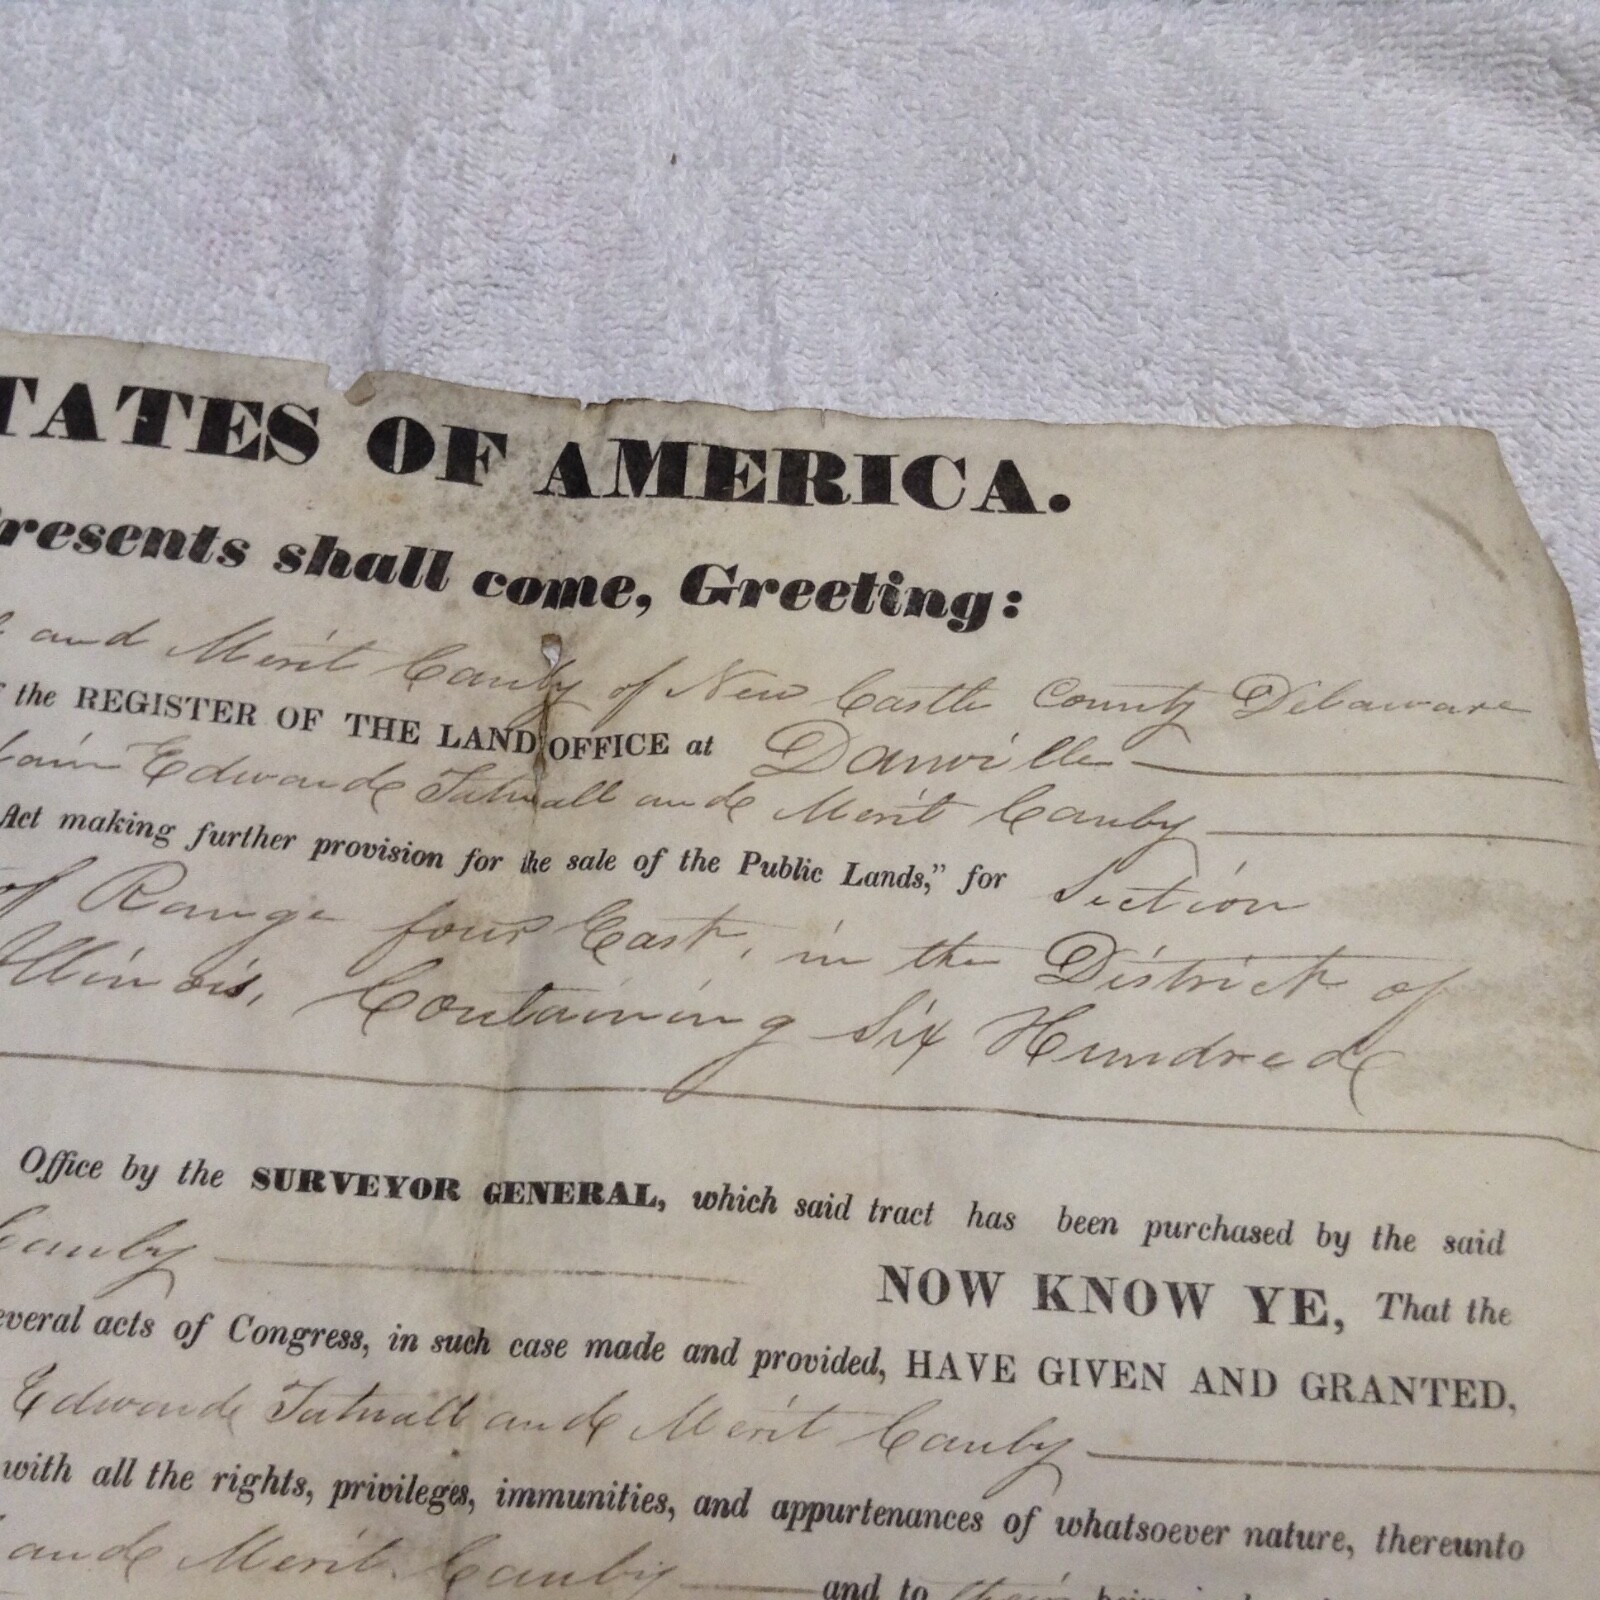 TATES OF AMERICA.
resents shall come, Greeting:
and Merit Canby of New Castle County Delaware
the REGISTER OF THE LAND OFFICE at Danville
Edward Tatnall and Merit Canby
Act making further provision for the sale of the Public Lands," for Section
of Range four East, in the District of
Illinois, Containing Six Hundred
Office by the SURVEYOR GENERAL, which said tract has been purchased by the said
Canby
NOW KNOW YE, That the
everal acts of Congress, in such case made and provided, HAVE GIVEN AND GRANTED,
Edward Tatnall and Merit Canby
with all the rights, privileges, immunities, and appurtenances of whatsoever nature, thereunto
and Merit Canby and to their